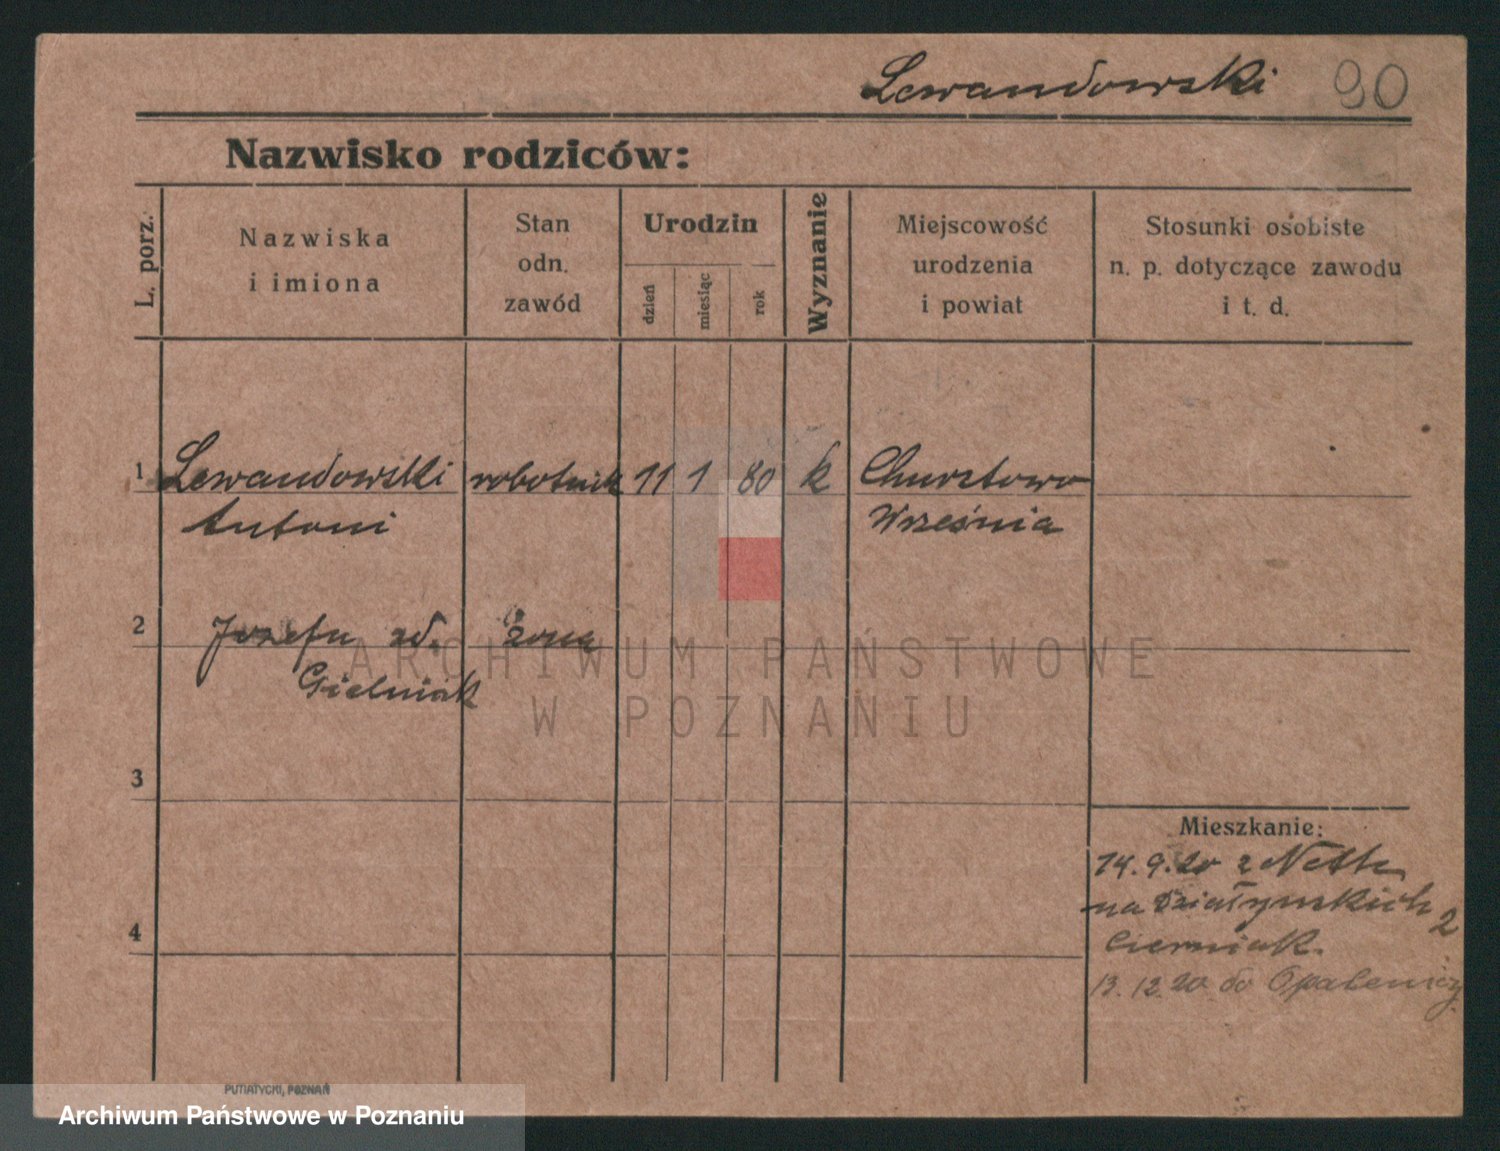 Lewandowski 90
Nazwisko rodziców:
L. porz.
Nazwiska
i imiona
Stan
odn.
zawód
Urodzin
dzień
miesiąc
rok
Wyznanie
Miejscowość
urodzenia
i powiat
Stosunki osobiste
n. p. dotyczące zawodu
i t. d.
1 Lewandowski robotnik 11 1 80 k
Antoni Września
2 Józefa żona
Gielniak
3
4
Mieszkanie:
14.9.20 z
na Działyńskich 2
Cierniak
13.12.20 do Opalenicy
ARCHIWUM PAŃSTWOWE
W POZNANIU
PUTIATYCKI, POZNAŃ
Archiwum Państwowe w Poznaniu